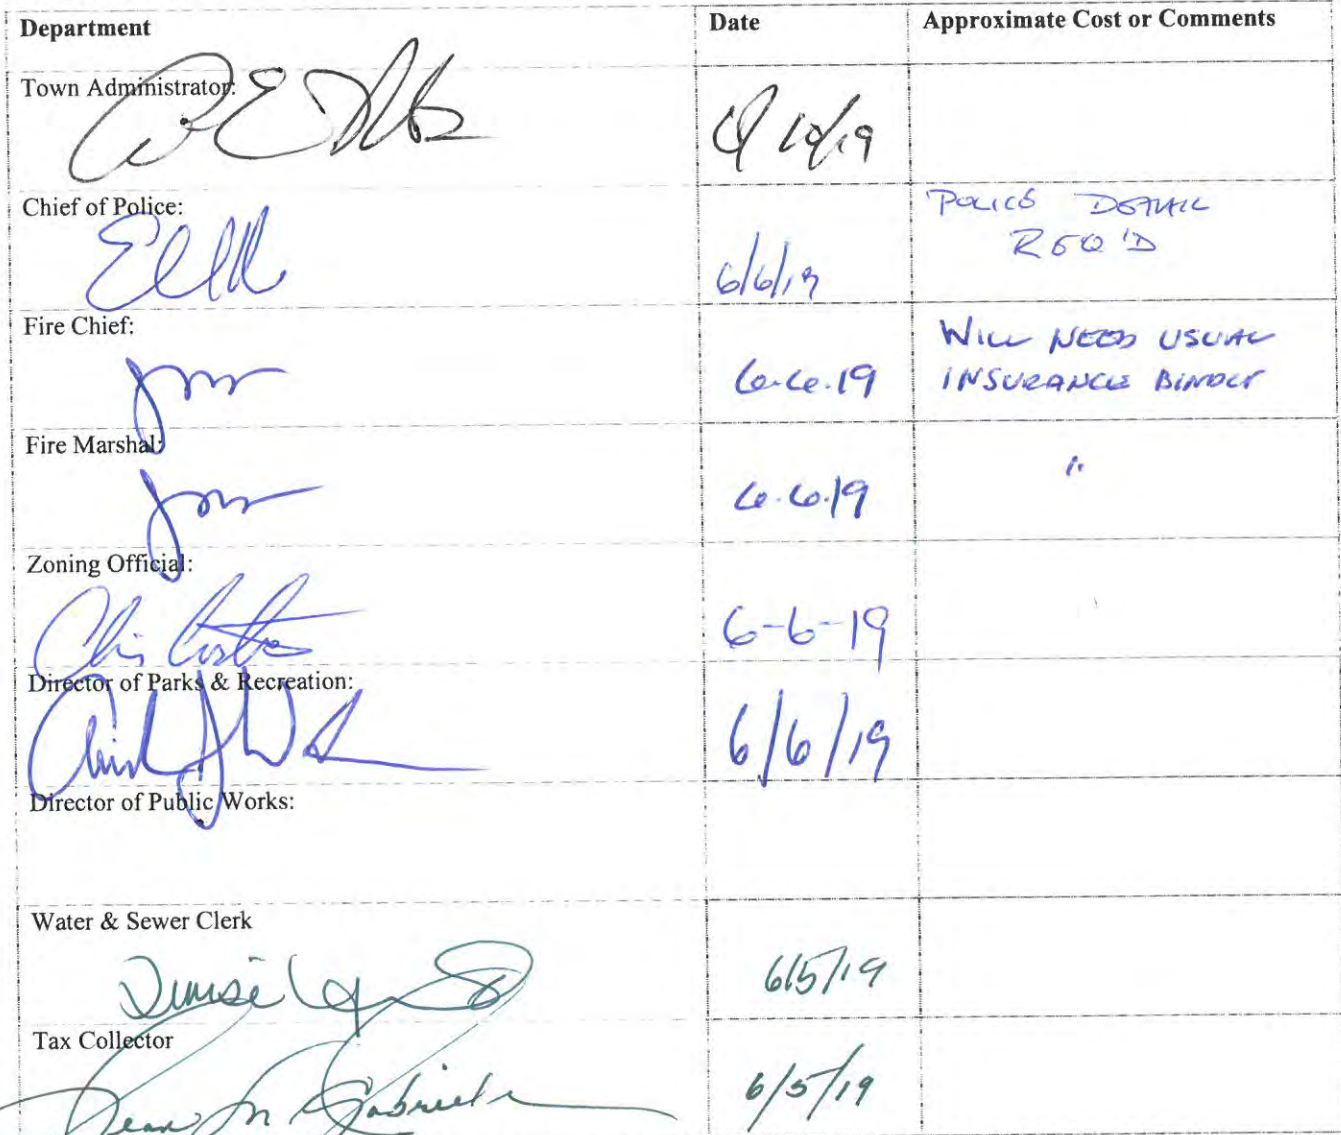 Department Date Approximate Cost or Comments
Town Administrator:
Chief of Police: POLICE DETAIL
REQ'D
6/6/19
Fire Chief: WILL NEED USUAL
6.6.19 INSURANCE BINDER
Fire Marshal:
6.6.19 "
Zoning Official:
Chris Costa 6-6-19
Director of Parks & Recreation:
6/6/19
Director of Public Works:
Water & Sewer Clerk
Denise 6/5/19
Tax Collector
Jean M Gabriele 6/5/19